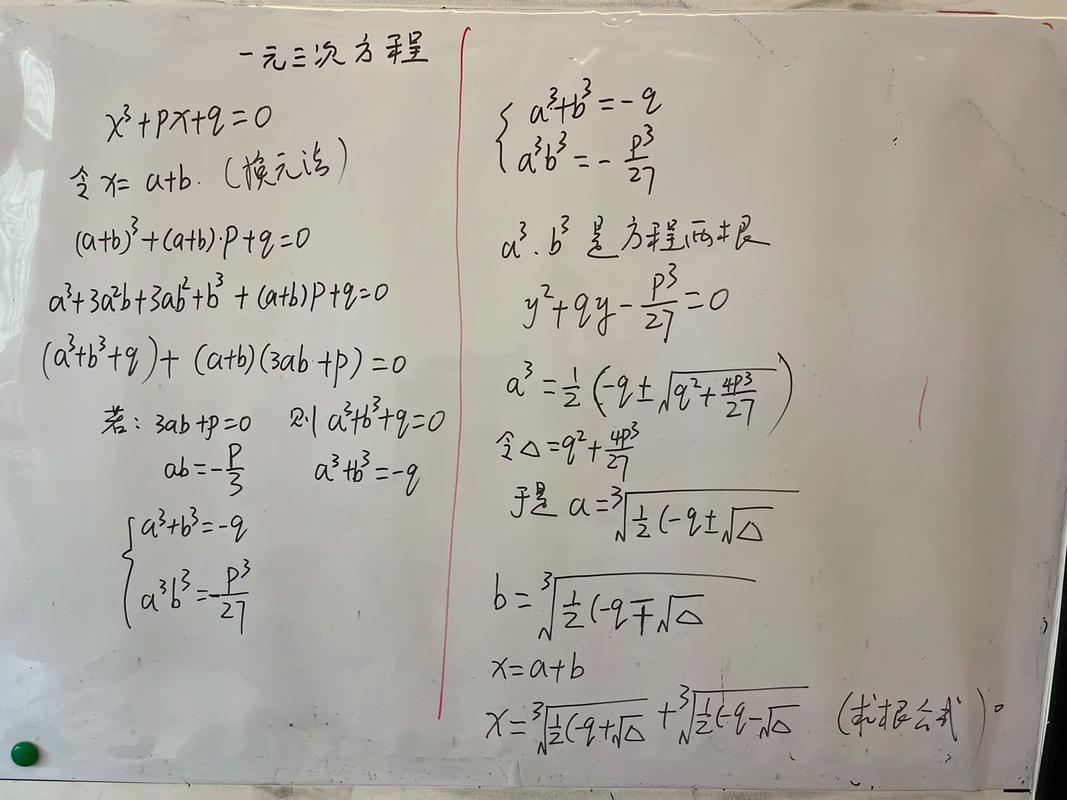 一元三次方程
x³+px+q=0
令 x= a+b. (换元法)
(a+b)³+(a+b)·p+q=0
a³+3a²b+3ab²+b³+(a+b)p+q=0
(a³+b³+q)+(a+b)(3ab+p)=0
若: 3ab+p=0 则 a³+b³+q=0
ab=-p/3 a³+b³=-q
{ a³+b³=-q
a³b³=-p³/27
{ a³+b³=-q
a³b³=-p³/27
a³.b³ 是方程两根
y²+qy-p³/27=0
a³=1/2(-q±√(q²+4p³/27))
令△=q²+4p³/27
于是 a=³√(1/2(-q±√△
b=³√(1/2(-q∓√△
x=a+b
x=³√(1/2(-q+√△ + ³√(1/2(-q-√△ (求根公式)。